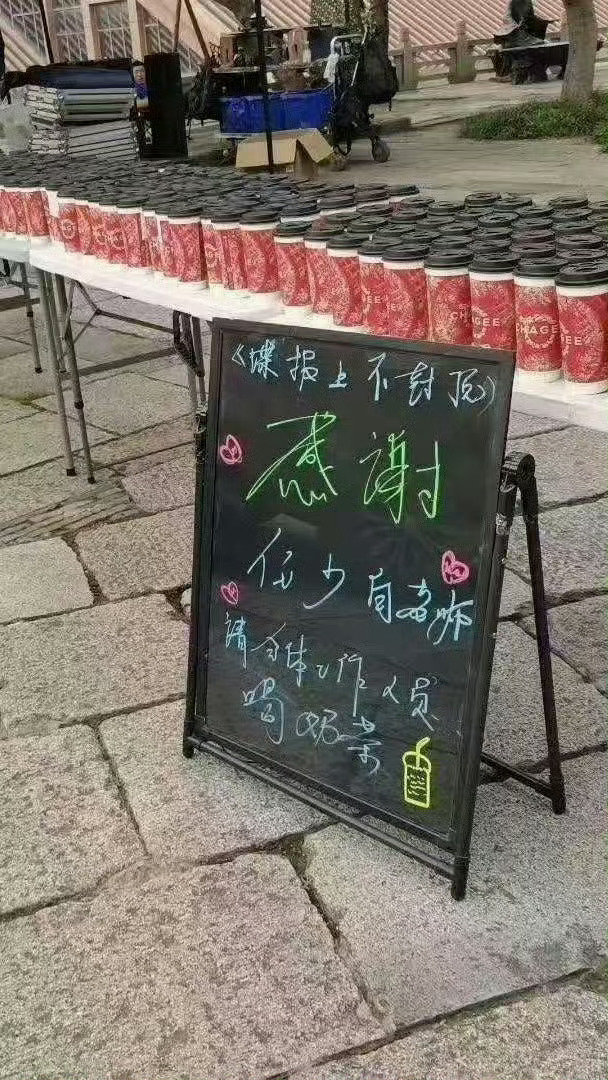 《谍报上不封顶》
感谢
任少白老师
請全体工作人员
喝奶茶
CHAGEE
CHAGEE